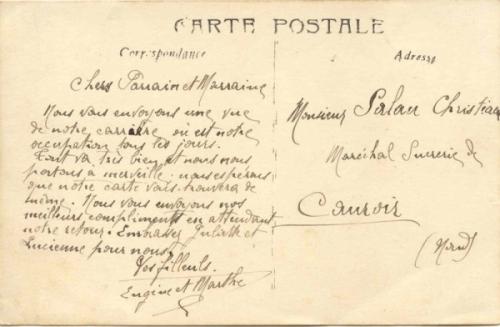 CARTE POSTALE
Correspondance
Adresse
Chers Parrain et Marraine
Nous vous envoyons une vue
de notre carrière où est notre
occupation tous les jours.
Tout va très bien et nous nous
portons à merveille. nous espérons
que notre carte vous trouvera de
même. Nous vous envoyons nos
meilleurs compliments en attendant
notre retour. Embrassez Juliette et
Lucienne pour nous.
Vos filleuls.
Eugène et Marthe
Monsieur Palau
Maréchal Sucrerie de
Cauroir
(Nord)